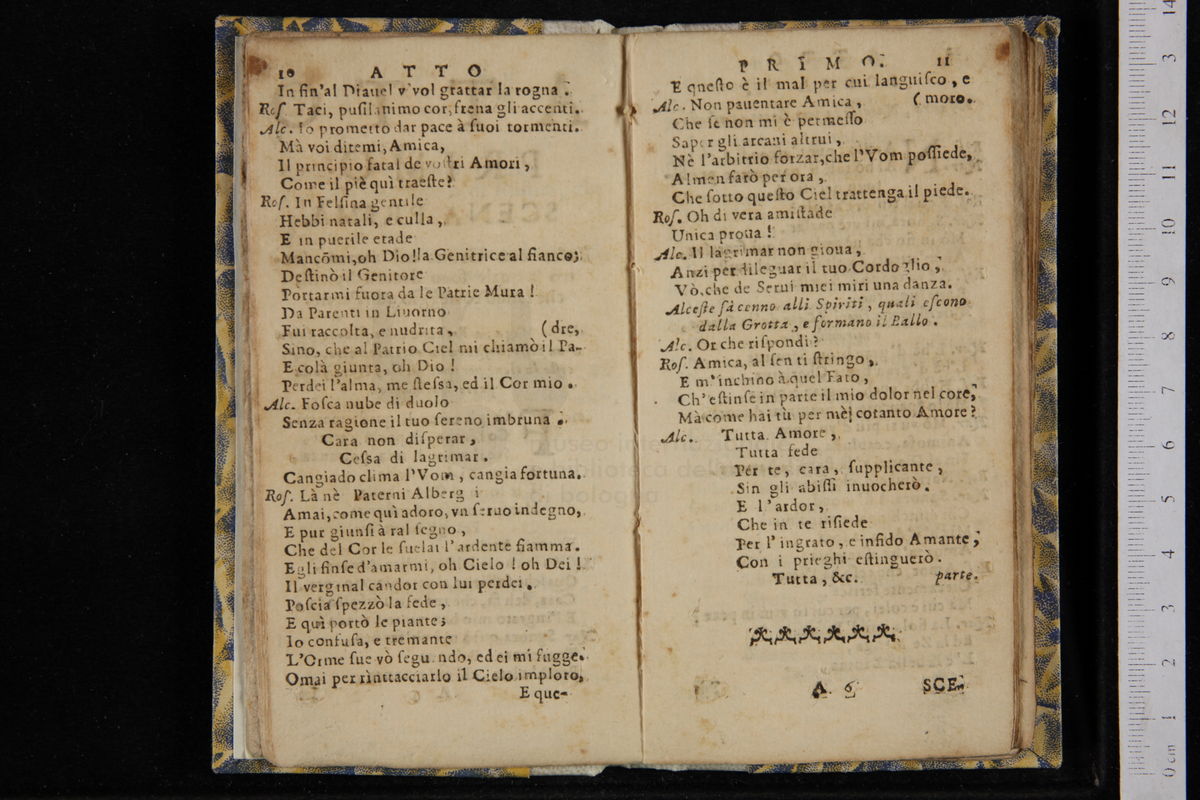 10 ATTO
In fin'al Diauel v'vol grattar la rogna.
Roſ. Taci, puſilanimo cor, frena gli accenti.
Alc. Io prometto dar pace à ſuoi tormenti.
Mà voi ditemi, Amica,
Il principio fatal de voſtri Amori,
Come il piè quì traeſte?
Roſ. In Felſina gentile
Hebbi natali, e culla,
E in puerile etade
Mancòmi, oh Dio! la Genitrice al fianco;
Deſtinò il Genitore
Portarmi fuora da le Patrie Mura!
Da Parenti in Liuorno
Fui raccolta, e nudrita, (dre,
Sino, che al Patrio Ciel mi chiamò il Pa-
E colà giunta, oh Dio!
Perdei l'alma, me ſteſsa, ed il Cor mio.
Alc. Foſca nube di duolo
Senza ragione il tuo ſereno imbruna.
Cara non diſperar,
Ceſsa di lagrimar.
Cangiado clima l'Vom, cangia fortuna.
Roſ. Là nè Paterni Alberg i
Amai, come quì adoro, vn ſeruo indegno,
E pur giunſi à tal ſegno,
Che del Cor le ſuelai l'ardente fiamma.
Egli finſe d'amarmi, oh Cielo! oh Dei!
Il verginal candor con lui perdei.
Poſcia ſpezzò la fede,
E quì portò le piante;
Io confuſa, e tremante
L'Orme ſue vò ſegu ndo, ed ei mi fugge.
Omai per rinttacciarlo il Cielo imploro,
E que-
PRIMO. 11
E queſto è il mal per cui languiſco, e
Alc. Non pauentare Amica, (moro.
Che ſe non mi è permeſſo
Saper gli arcani altrui,
Nè l'arbitrio forzar, che l'Vom poſſiede,
Almen farò per ora,
Che ſotto queſto Ciel trattenga il piede.
Roſ. Oh di vera amiſtade
Unica proua!
Alc. Il lagrimar non gioua,
Anzi per dileguar il tuo Cordoglio,
Vò, che de Serui miei miri una danza.
Alceſte fà cenno alli Spiriti, quali eſcono
dalla Grotta, e formano il Ballo.
Alc. Or che riſpondi?
Roſ. Amica, al ſen ti ſtringo,
E m'inchino à quel Fato,
Ch'eſtinſe in parte il mio dolor nel core,
Mà come hai tù per mè cotanto Amore?
Alc. Tutta Amore,
Tutta fede
Per te, cara, ſupplicante,
Sin gli abiſſi inuocherò.
E l'ardor,
Che in te riſiede
Per l'ingrato, e infido Amante,
Con i prieghi eſtinguerò.
Tutta, &c. parte.
A 6 SCE-